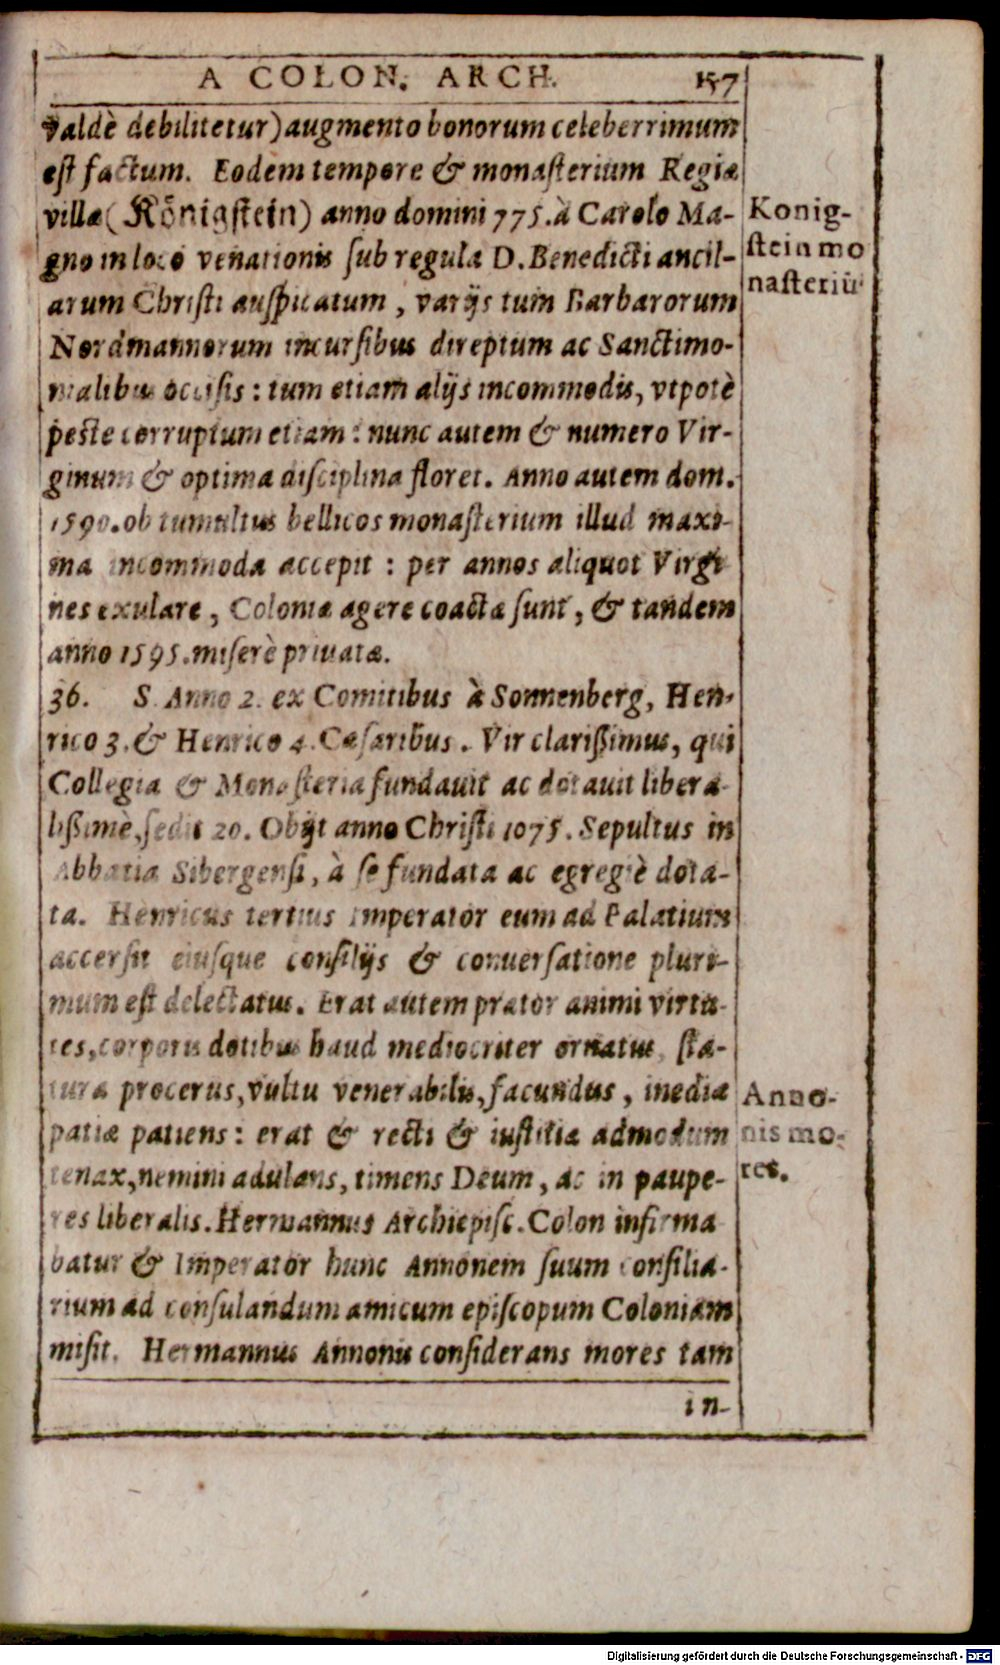 A COLON. ARCH. 157
valdè debilitetur) augmento bonorum celeberrimum
est factum. Eodem tempore & monasterium Regiæ
villæ (Königstein) anno domini 775. à Carolo Ma-
gno in loco venationis sub regula D. Benedicti ancil-
arum Christi auspicatum, varijs tum Barbarorum
Nordmannorum incursibus direptum ac Sanctimo-
nialibus occisis: tum etiam alijs incommodis, vtpotè
peste corruptum etiam: nunc autem & numero Vir-
ginum & optima disciplina floret. Anno autem dom.
1590. ob tumultus bellicos monasterium illud maxi-
ma incommoda accepit: per annos aliquot Virgi
nes exulare, Coloniæ agere coactæ sunt, & tandem
anno 1595. miserè priuatæ.
36. S. Anno 2. ex Comitibus à Sonnenberg, Hen-
rico 3. & Henrico 4. Cæsaribus. Vir clarissimus, qui
Collegia & Monasteria fundauit ac dotauit libera-
lissimè, sedit 20. Obijt anno Christi 1075. Sepultus in
Abbatia Sibergensi, à se fundata ac egregiè dota-
ta. Henricus tertius Imperator eum ad Palatium
accersit eiusque consilijs & conuersatione pluri-
mum est delectatus. Erat autem præter animi virtu-
tes, corporis dotibus haud mediocriter ornatus, sta-
tura procerus, vultu venerabilis, facundus, inediæ
patiæ patiens: erat & recti & iustitiæ admodum
tenax, nemini adulans, timens Deum, ac in paupe-
res liberalis. Hermannus Archiepisc. Colon infirma
batur & Imperator hunc Annonem suum consilia-
rium ad consulandum amicum episcopum Coloniam
misit. Hermannus Annonis considerans mores tam
in-
Konig-
stein mo
nasteriū
Anno-
nis mo-
res.
Digitalisierung gefördert durch die Deutsche Forschungsgemeinschaft - DFG